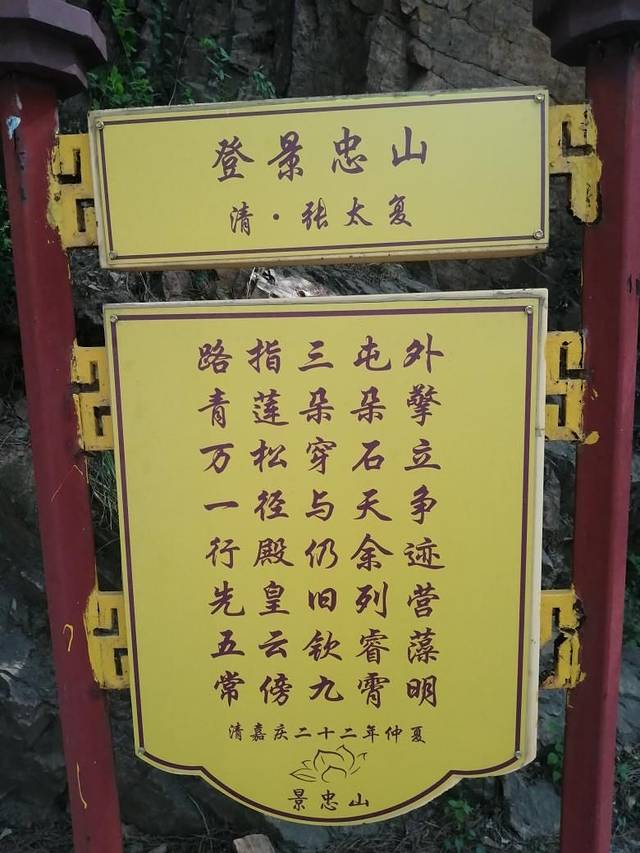 登景忠山
清·张太复
路指三屯外
青莲朵朵擎
万松穿石立
一径与天争
行殿仍余迹
先皇旧列营
五云钦睿藻
常傍九霄明
清嘉庆二十二年仲夏
景忠山